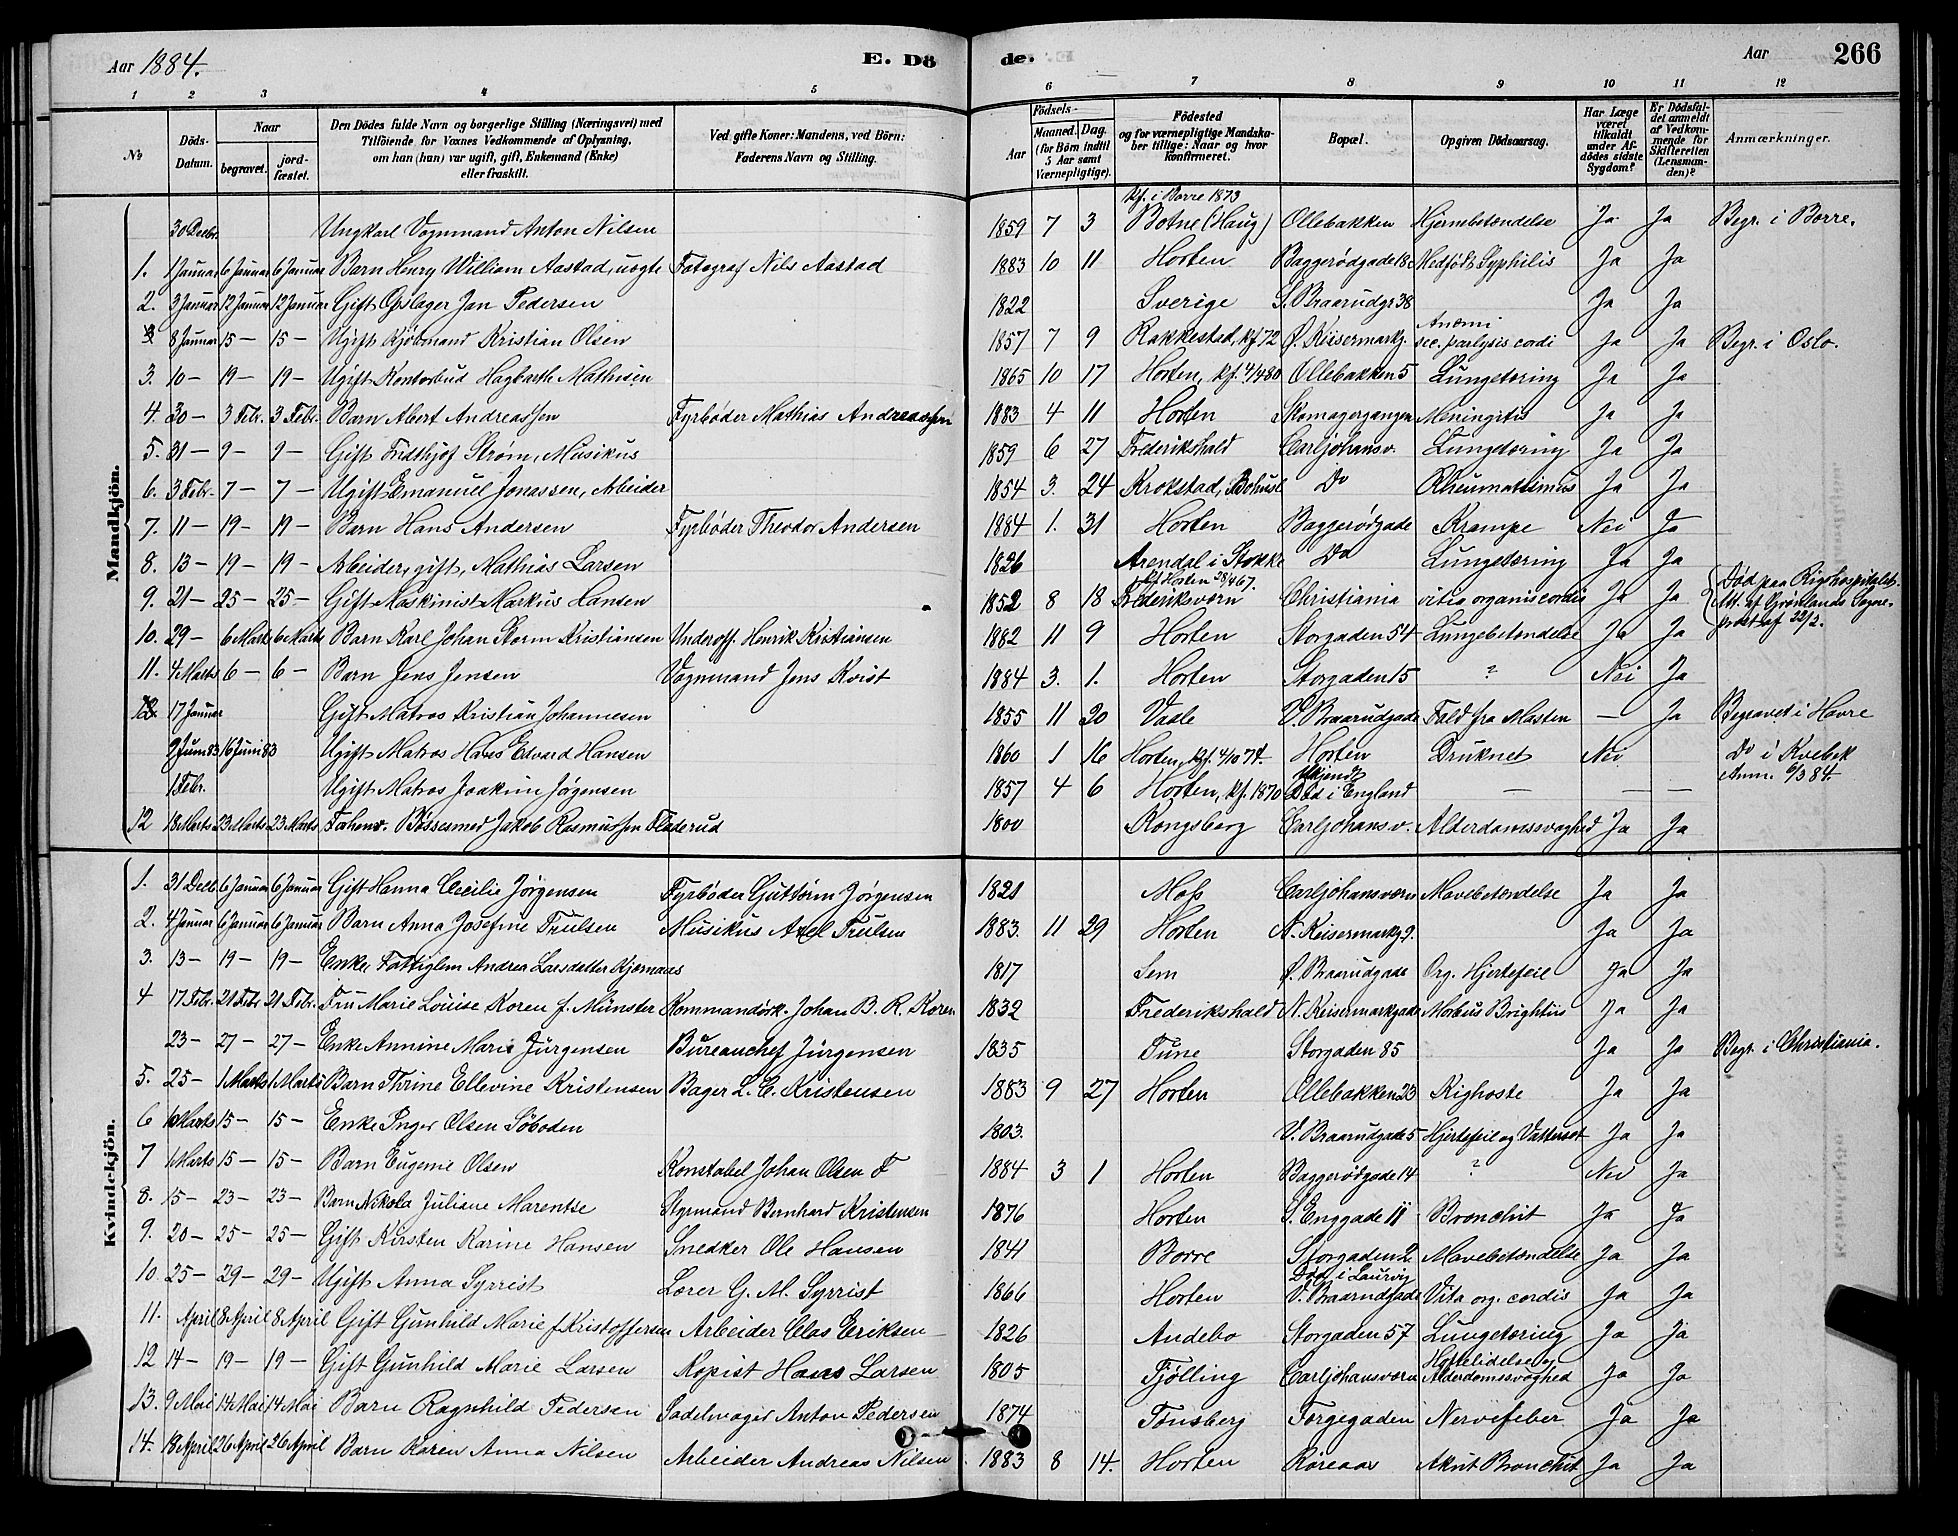 Aar 1884. E. Döde. Aar 266
1 2 3 4 5 6 7 8 9 10 11 12
No Döds-Datum. Naar begravet. jordfæstet. Den Dödes fulde Navn og borgerlige Stilling (Næringsvei) med Tilföiende for Voxnes Vedkommende af Oplysning, om han (hun) var ugift, gift, Enkemand (Enke) eller fraskilt. Ved gifte Koner: Mandens, ved Börn: Faderens Navn og Stilling. Födsels- Aar Maaned. Dag. (for Börn indtil 5 Aar samt Værnepligtige). Födested og for værnepligtige Mandskaber tillige: Naar og hvor konfirmeret. Bopæl. Opgiven Dödsaarsag. Har Læge været tilkaldt under Afdödes sidste Sygdom? Er Dödsfaldet anmeldt af Vedkommende for Skifteretten (Lensmanden)? Anmærkninger.
Mandkjön.
30 Decbr. Ungkarl Vognmand Anton Nilsen 1859 7 3 kf. i Borre 1873 Botne (Haug) Ollebakken Hjernebetændelse Ja Ja Begr. i Borre.
1. 1 Januar 6 Januar 6 Januar Barn Henry William Aastad, uegte Fotograf Nils Aastad 1883 10 11 Horten Baggerødgade 18 Medfødt Syphilis Ja Ja
2. 3 Januar 12 Januar 12 Januar Gift Opslager Jan Pedersen 1822 Sverige S. Braarudg. 38 Ja Ja
3 8 Januar 15 — 15 — Ugift Kjøbmand Kristian Olsen 1857 7 9 Rakkestad, kf. 72 Ø. Keisermarkg. Anæmi sec. paralysis cordi Ja Ja Begr. i Oslo.
3. 10 — 19 — 19 — Ugift Kontorbud Hagbarth Mathisen 1865 10 17 Horten, kf. 4/4 80 Ollebakken 5 Lungetæring Ja Ja
4. 30 — 3 Febr. 3 Febr. Barn Abert Andreassen Fyrbøder Mathias Andreassen 1883 4 11 Horten Skomagergangen Meningitis Ja Ja
5. 31 — 9 — 9 — Gift Fridthjof Strøm, Musikus 1859 6 27 Frederikshald Carljohansv. Lungetæring Ja Ja
6. 3 Febr. 7 — 7 — Ugift Emanuel Jonassen, Arbeider 1854 3. 24 Krokstad, Bohusl Do Rheumatismus Ja Ja
7. 11 — 19 — 19 — Barn Hans Andersen Fyrbøder Theodor Andersen 1884 1. 31 Horten Baggerødgade Krampe Nei Ja
8. 13 — 19 — 19 — Arbeider, gift, Mathias Larsen 1826 Arendal i Stokke Do Lungetæring Ja Ja
9. 21 — 25 — 25 — Gift Maskinist Markus Hansen 1852 8 18 kf. Horten 28/4 67. Frederiksværn Christiania vitia organis cordis Ja Ja Død paa Rigshospitalet. Att. af Grønlands Sognepræst af 22/2.
10. 29 — 6 Marts 6 Marts Barn Karl Johan Storm Kristiansen Underoff. Henrik Kristiansen 1882 11 9 Horten Storgaden 54 Lungebetændelse Ja Ja
11. 4 Marts 6 — 6 — Barn Jens Jensen Vognmand Jens Kvist 1884 3. 1. Horten Storgaden 15 ? Nei Ja
12 17 Januar Gift Matros Kristian Johannesen 1855 11 20 Vaale V. Braarudgade Fald fra Masten — Ja Begravet i Havre
9 Juni 83 16 Juni 83 Ugift Matros Hans Edvard Hansen 1860 1 16 Horten, kf. 4/10 74. Horten Druknet Nei Do i Kvebek
1 Febr. Ugift Matros Joakim Jørgensen 1857 4 6 Horten, kf. 1870 Død i England — — — Anm. 6/3 84.
12 18 Marts 23 Marts 23 Marts Forhenv. Bøssesmed Jakob Rasmussen Fladerud 1800 Kongsberg Carljohansv. Alderdomssvaghed Ja Ja
Kvindekjön.
1. 31 Decb. 6 Januar 6 Januar Gift Hanna Cecilie Jørgensen Fyrbøder Guttorm Jørgensen 1821 Moss Carljohansværn Mavebetændelse Ja Ja
2. 4 Januar 6 Januar 6 Januar Barn Anna Josefine Trulsen Musikus Axel Trulsen 1883. 11 29 Horten N. Keisermarkg. 9. Ja Ja
3. 13 — 19 — 19 — Enke, Fattiglem Andrea Larsdatter Kjærnaas 1817 Sem Ø. Braarudgade Org. Hjertefeil Ja Ja
4 17 Febr. 21 Febr. 21 Febr. Fru Marie Louise Koren f. Münster Kommandørk. Johan B. R. Koren 1832 Frederikshald N. Keisermarkgade Morbus Brightii Ja Ja
23 — 27 — 27 — Enke Annine Marie Jürgensen Bureauchef Jürgensen 1835 Tune Storgaden 85 Ja Ja Begr. i Christiania.
5. 25 — 1 Marts 1 Marts Barn Thrine Ellevine Kristensen Bager L. C. Kristensen 1883 9 27 Horten Ollebakken 23 Kighoste Ja Ja
6 10 Marts 15 — 15 — Enke Inger Olsen Søboden 1803. V. Braarudgade 5 Hjertefeil og Vattersot Ja Ja
7 1 Marts 15 — 15 — Barn Eugenie Olsen Konstabel Johan Olsen F 1884 3 1 Horten Baggerødgade 14 ? Nei Ja
8. 15 — 23 — 23 — Barn Nikola Juliane Marentse Styrmand Bernhard Kristensen 1876 Horten S. Enggade 11 Bronchit Ja Ja
9. 20 — 25 — 25 — Gift Kirsten Karine Hansen Snedker Ole Hansen 1841 Borre Storgaden 2. Mavebetændelse Ja Ja
10. 25 — 29 — 29 — Ugift Anna Syrrist Lærer G. M. Syrrist 1866 Horten Død i Laurvig V. Braarudgade Vita org. cordis Ja Ja
11. April 8 April 8 April Gift Gunhild Marie f. Kristoffersen Arbeider Clas Eriksen 1826 Andebo Storgaden 57 Lungetæring Ja Ja
12 14 — 19 — 19 — Gift Gunhild Marie Larsen Kopist Hans Larsen 1805 Tjølling Carljohansværn Hoftelidelse og Alderdomssvaghed Ja Ja
13. 9 Mai 14 Mai 14 Mai Barn Ragnhild Pedersen Sadelmager Anton Pedersen 1874 Tønsberg Torgegaden Nervefeber Ja Ja
14. 18 April 26 April 26 April Barn Karen Anna Nilsen Arbeider Andreas Nilsen 1883 8 14. Horten Røreaas Akut Bronchit Ja Ja